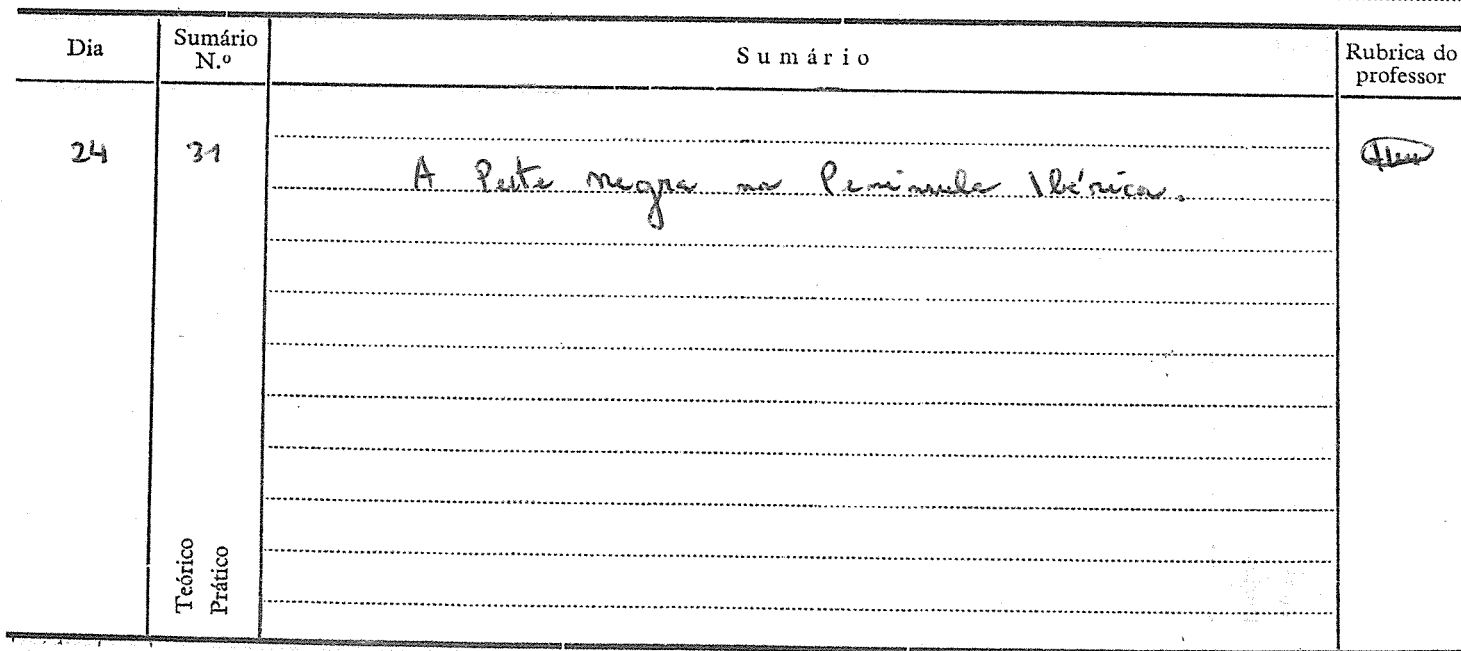 Dia
Sumário
N.º
Sumário
Rubrica do
professor
24
31
A Peste negra na Península Ibérica.
Teórico
Prático